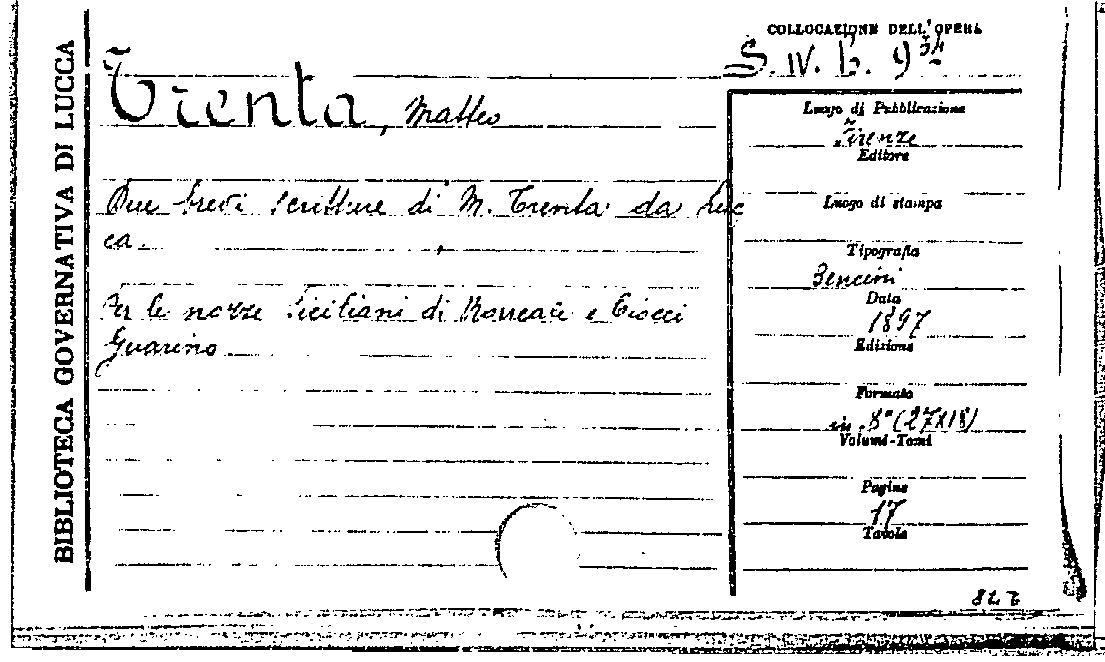 BIBLIOTECA GOVERNATIVA DI LUCCA
COLLOCAZIONE DELL'OPERA
S. IV. b. 9
Trenta, Matteo
Due brevi scritture di M. Trenta da Luc
ca.
Per le nozze Siciliani di e Ciocci
Guarino
Luogo di Pubblicazione
Firenze
Editore
Luogo di stampa
Tipografia
Bencini
Data
1897
Edizione
Formato
in 8° (27X18)
Volumi-Tomi
Pagine
17
Tavole